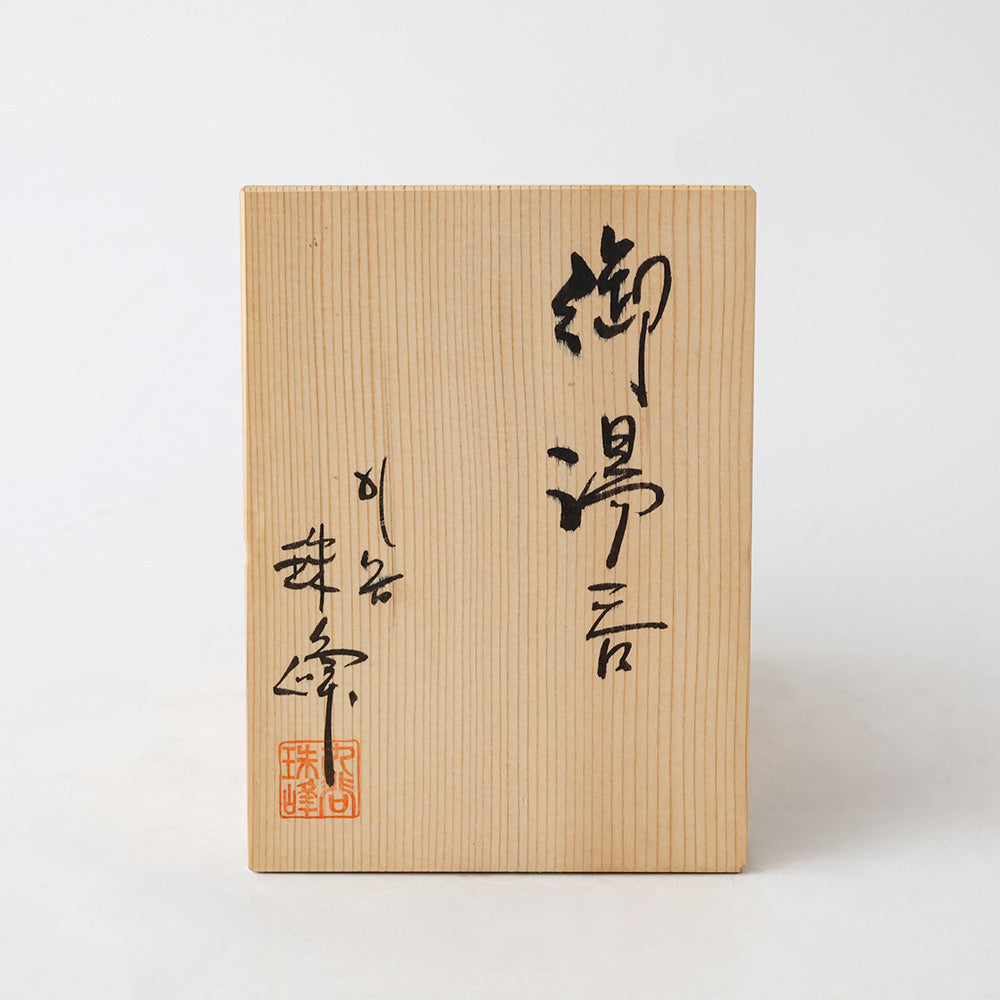 御湯呑
九谷
珠峰
九谷
珠峰